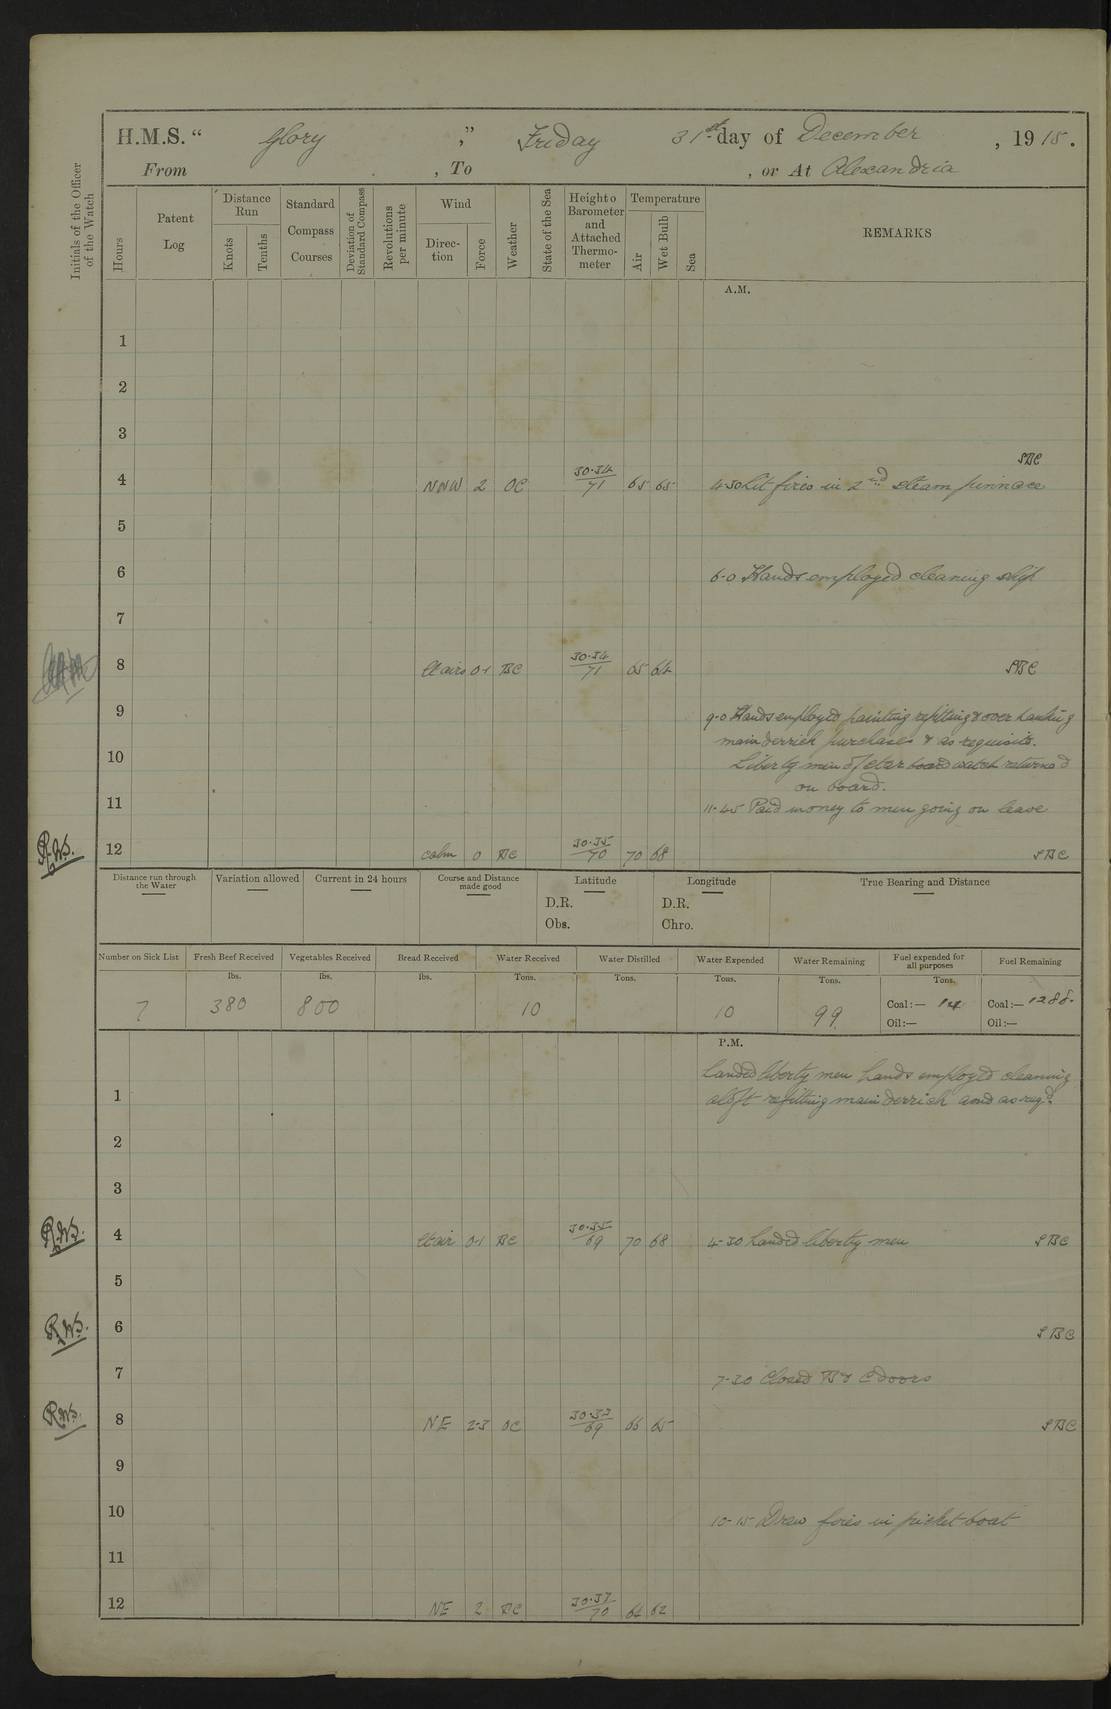 H.M.S. “ Glory ” , Friday 31st day of December , 1915.
From , To , or At Alexandria
Initials of the Officer of the Watch
Hours
Patent Log
Distance Run
Knots
Tenths
Standard Compass Courses
Deviation of Standard Compass
Revolutions per minute
Wind
Direction
Force
Weather
State of the Sea
Height o Barometer and Attached Thermometer
Temperature
Air
Wet Bulb
Sea
REMARKS
A.M.
1
2
3
SBC
4 NNW 2 OC 30·34 71 65 65 4-30 Lit fires in 2nd steam pinnace
5
6 6-0 Hands employed cleaning ship
7
8 Lt airs 0-1 BC 30·34 71 65 64 SBC
9 9-0 Hands employed painting refitting & over hauling
main derrick purchases & as requisite.
10 Liberty men of star board watch returned
on board.
11 11-45 Paid money to men going on leave
RWB. 12 calm 0 BC 30·35 70 70 68 SBC
Distance run through the Water
Variation allowed
Current in 24 hours
Course and Distance made good
Latitude
D.R.
Obs.
Longitude
D.R.
Chro.
True Bearing and Distance
Number on Sick List Fresh Beef Received Vegetables Received Bread Received Water Received Water Distilled Water Expended Water Remaining Fuel expended for all purposes Fuel Remaining
lbs. lbs. lbs. Tons. Tons. Tons. Tons. Tons.
7 380 800 10 10 99 Coal:— 14 Coal:— 1288.
Oil:— Oil:—
P.M.
Landed liberty men hands employed cleaning
1 aloft refitting main derrick and as reqd.
2
3
RWB. 4 Lt air 0-1 BC 30·35 69 70 68 4-30 Landed liberty men SBC
5
RWB. 6 SBC
7 7-30 Closed B & C doors
RWB. 8 NE 2-3 OC 30·37 69 66 65 SBC
9
10 10-15 Drew fires in picket boat
11
12 NE 2 BC 30·37 70 64 62